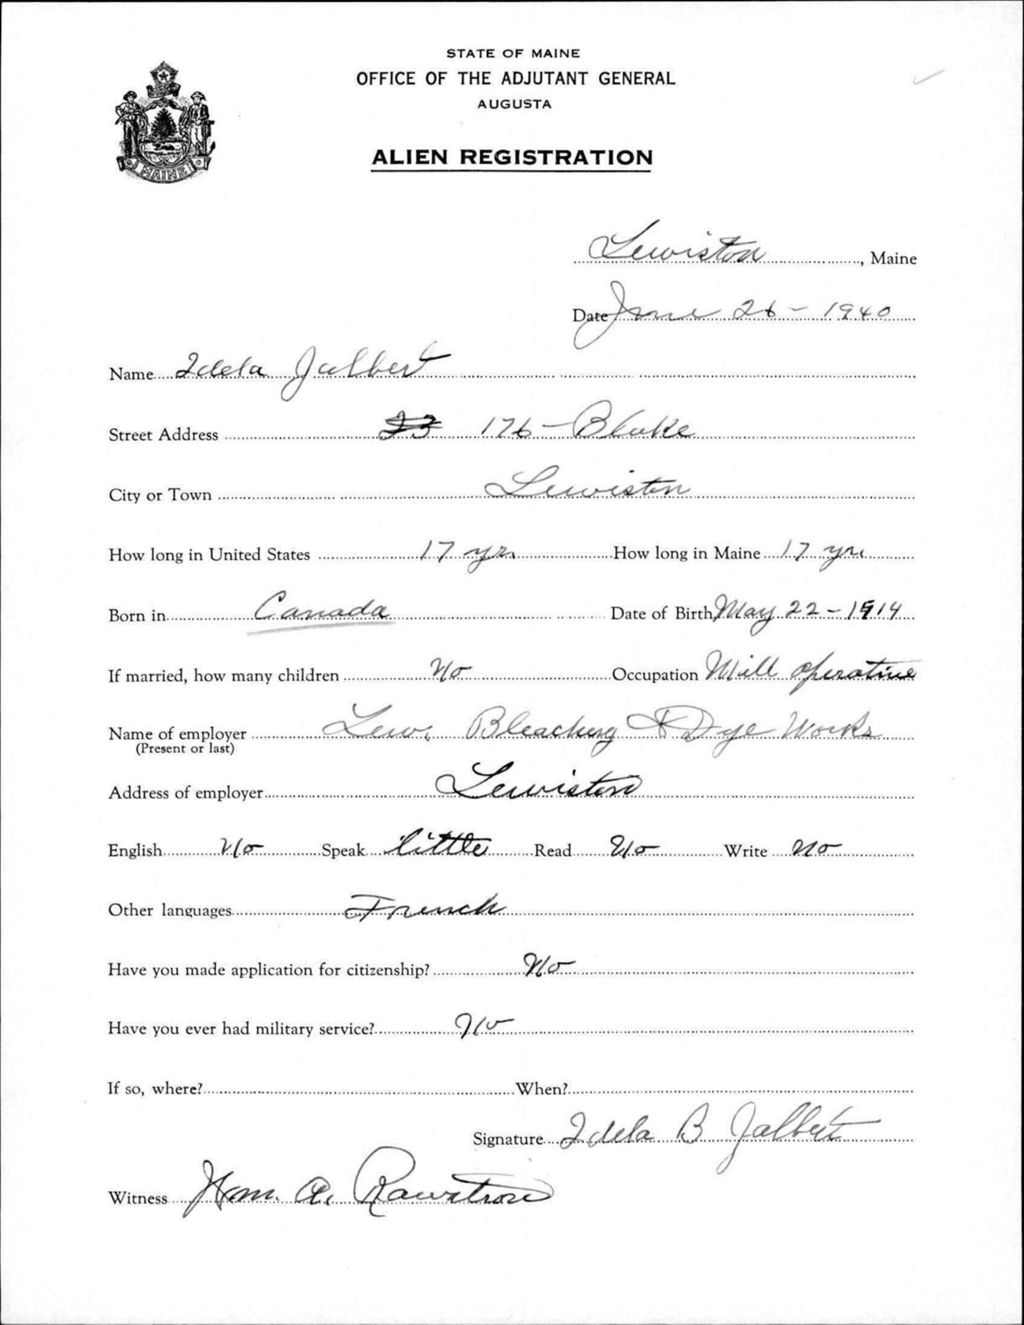 STATE OF MAINE
OFFICE OF THE ADJUTANT GENERAL
AUGUSTA
ALIEN REGISTRATION
MAINE
Lewiston, Maine
Date June 26 - 1940
Name Idela Jalbert
Street Address 23 176 - Blake
City or Town Lewiston
How long in United States 17 yrs How long in Maine 17 yrs
Born in Canada Date of Birth May 22 - 1914
If married, how many children No Occupation Mill operative
Name of employer Lew. Bleachery & Dye Works
(Present or last)
Address of employer Lewiston
English No Speak little Read No Write No
Other languages French
Have you made application for citizenship? No
Have you ever had military service? No
If so, where? When?
Signature Idela B Jalbert
Witness Wm. A.